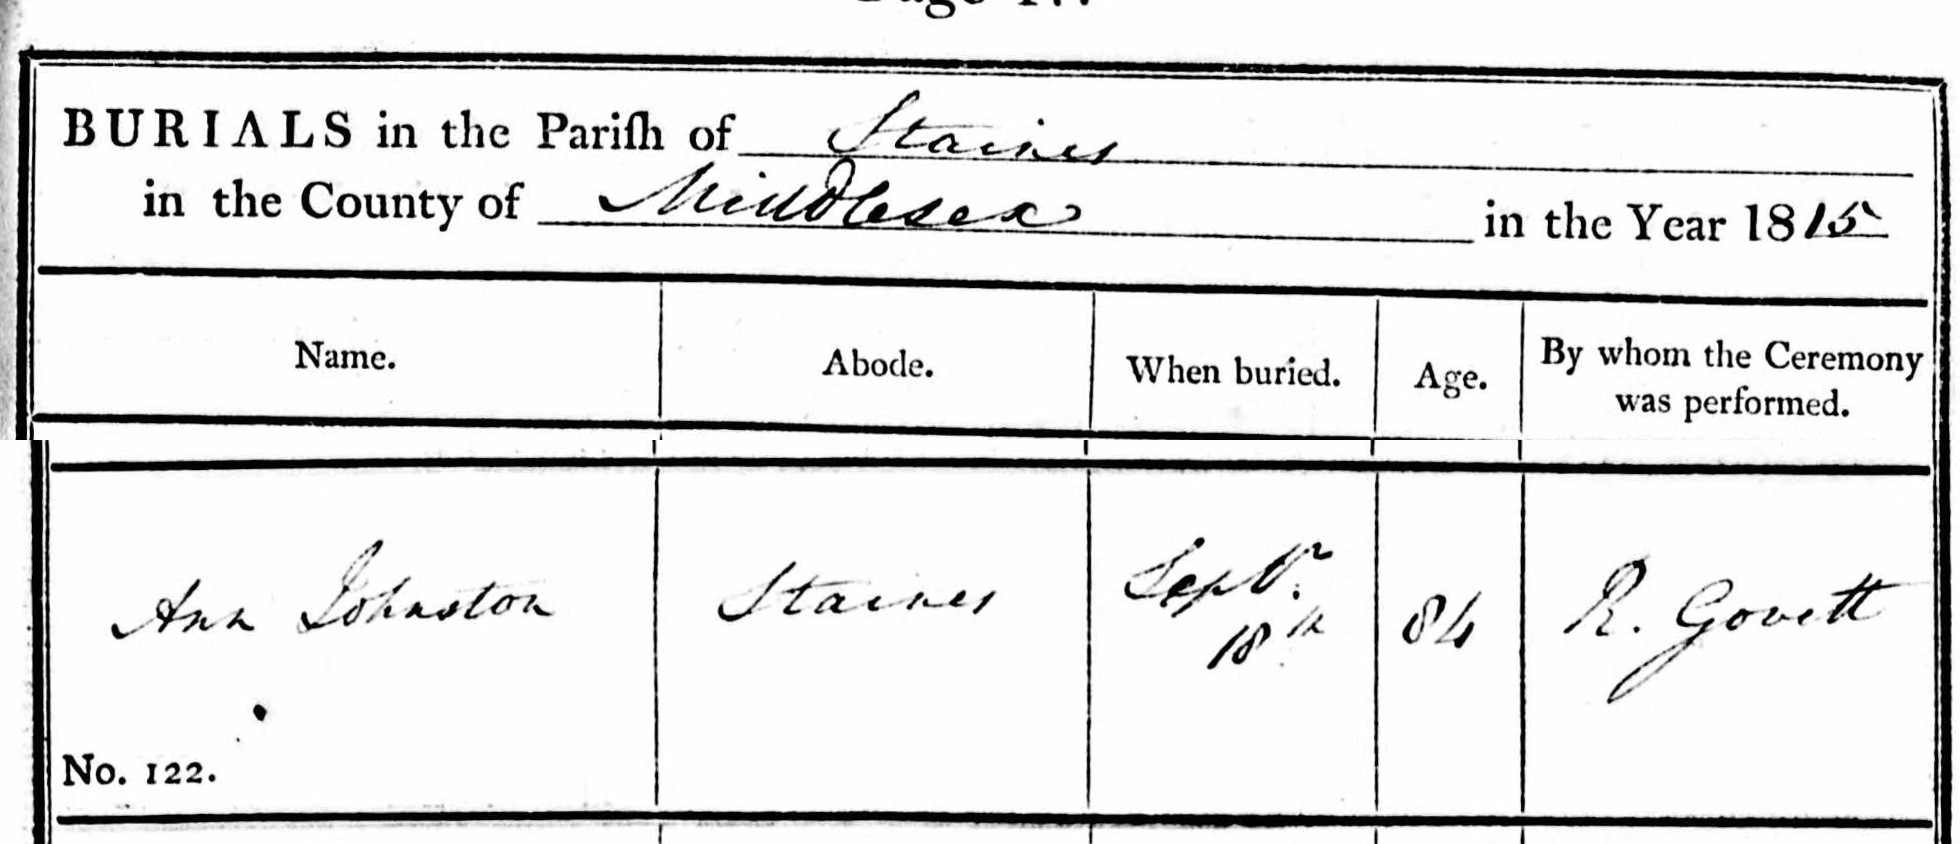 BURIALS in the Pariſh of Staines
in the County of Middlesex in the Year 1815
Name. Abode. When buried. Age. By whom the Ceremony
was performed.
Ann Johnston Staines Septr. 84 R. Govett
18th
No. 122.